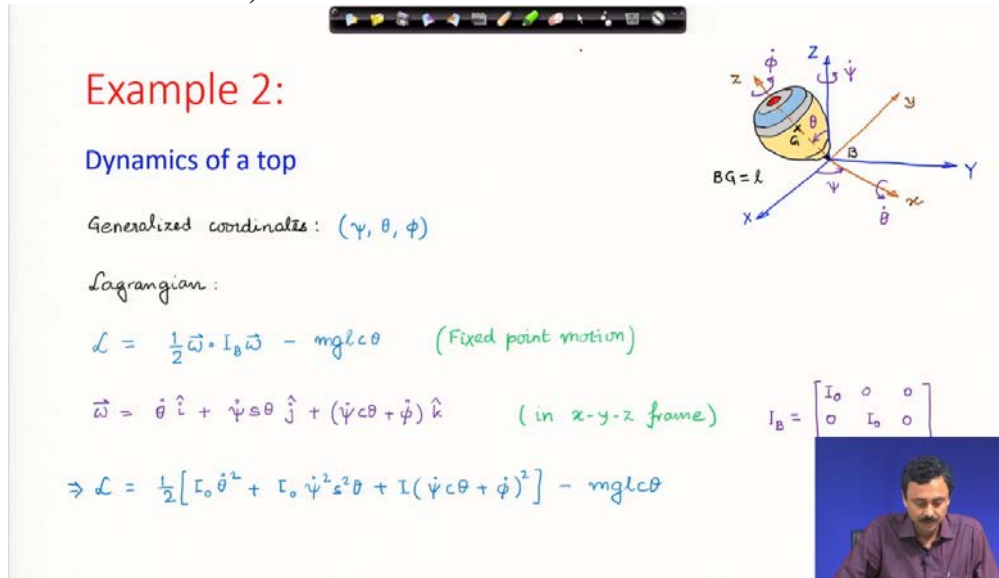 Example 2:
Dynamics of a top
Generalized coordinates: (ψ, θ, φ)
Lagrangian:
ℒ = 1/2 ω⃗ · I_B ω⃗ − mglcθ (Fixed point motion)
ω⃗ = θ̇ î + ψ̇sθ ĵ + (ψ̇cθ + φ̇) k̂ (in x-y-z frame)
I_B = [I₀ 0 0
0 I₀ 0
⇒ ℒ = 1/2 [I₀θ̇² + I₀ψ̇²s²θ + I(ψ̇cθ + φ̇)²] − mglcθ
φ̇
Z
ψ̇
z
y
θ
G
B
BG = l
Y
ψ
X
x
θ̇